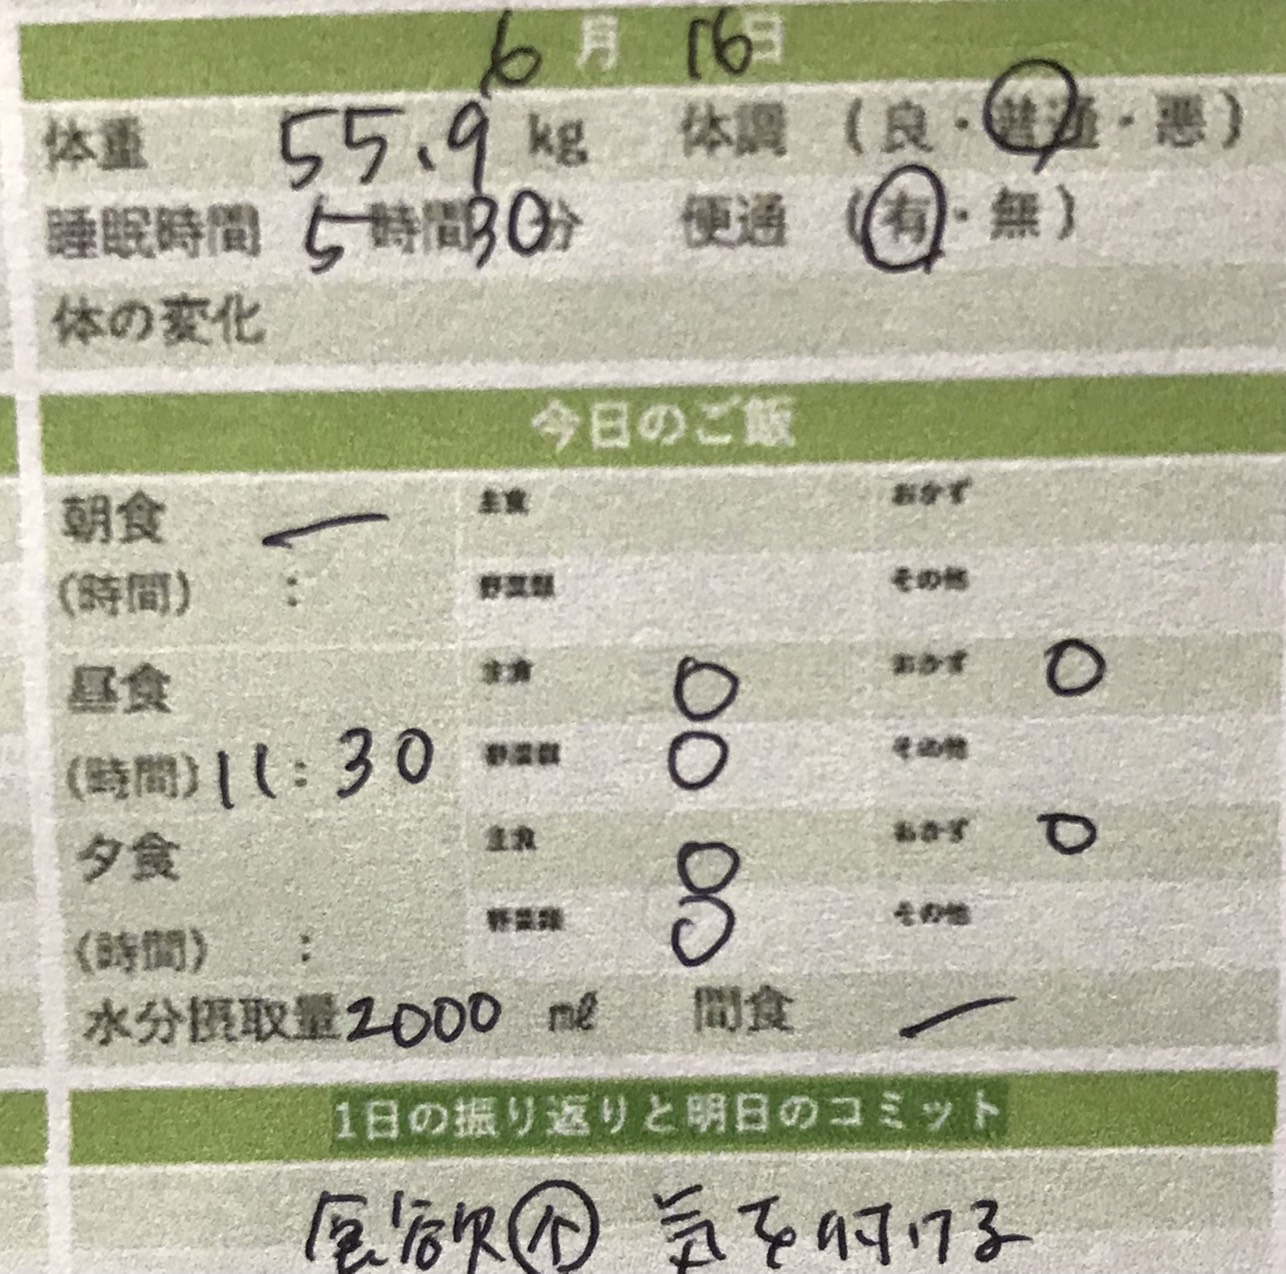 6月 16日
体重 55.9 kg 体調 (良・普通・悪)
睡眠時間 5時間30分 便通 (有・無)
体の変化
今日のご飯
朝食 ー 主食 おかず
(時間) : 野菜類 その他
昼食 主食 〇 おかず 〇
(時間) 11:30 野菜類 〇 その他
夕食 主食 〇 おかず 〇
(時間) : 野菜類 〇 その他
水分摂取量 2000 ㎖ 間食 ー
1日の振り返りと明日のコミット
欲 气を付ける